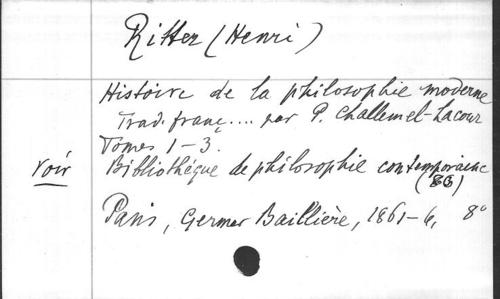 Ritter (Henri)
Histoire de la philosophie moderne
Trad. franç.... par P. Challemel-Lacour
Tomes 1-3.
voir Bibliothèque de philosophie contemporaine
(86)
Paris, Germer Baillière, 1861-6, 8°